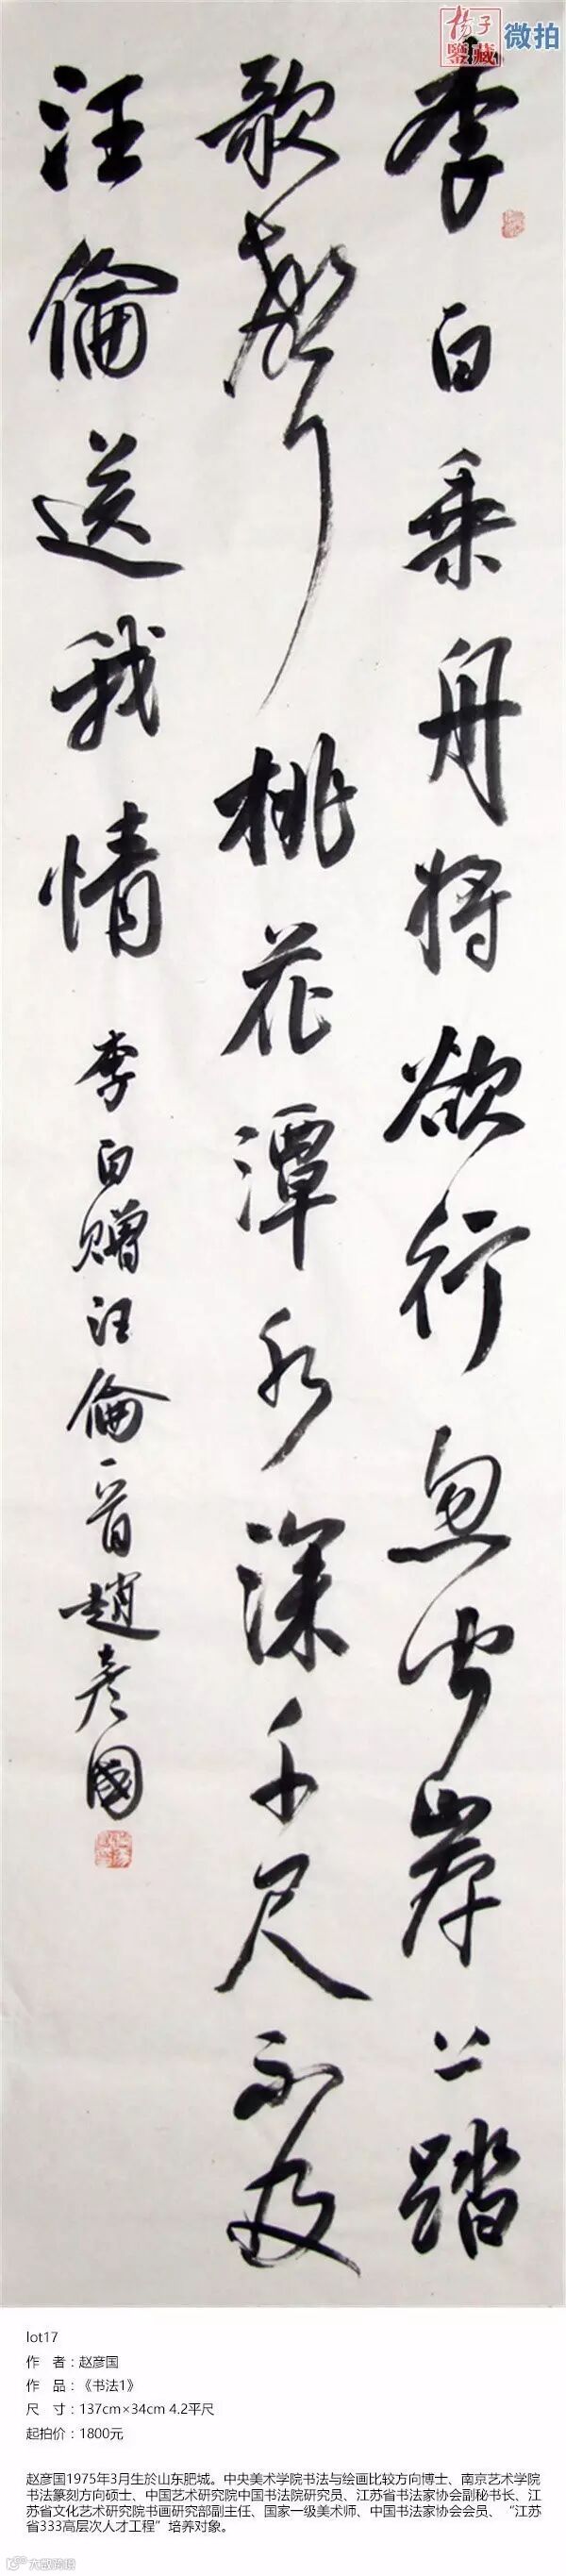 杨子
鉴藏
微拍
李白乘舟将欲行忽闻岸上踏
歌聲桃花潭水深千尺不及
汪倫送我情
李白赠汪倫一首趙彦國
lot17
作 者：赵彦国
作 品：《书法1》
尺 寸：137cm×34cm 4.2平尺
起拍价：1800元
赵彦国1975年3月生於山东肥城。中央美术学院书法与绘画比较方向博士、南京艺术学院
书法篆刻方向硕士、中国艺术研究院中国书法院研究员、江苏省书法家协会副秘书长、江
苏省文化艺术研究院书画研究部副主任、国家一级美术师、中国书法家协会会员、“江苏
省333高层次人才工程”培养对象。